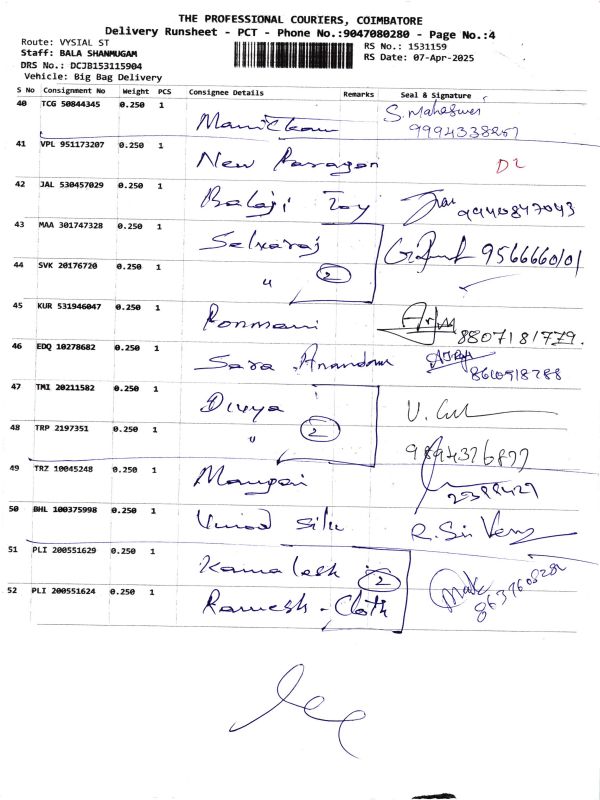 THE PROFESSIONAL COURIERS, COIMBATORE
Delivery Runsheet - PCT - Phone No.:9047080280 - Page No.:4
Route: VYSIAL ST
Staff: BALA SHANMUGAM
DRS No.: DCJB153115904
Vehicle: Big Bag Delivery
RS No.: 1531159
RS Date: 07-Apr-2025
S No Consignment No Weight PCS Consignee Details Remarks Seal & Signature
40 TCG 50844345 0.250 1 S. Maheswari
41 VPL 951173207 0.250 1 New Paragon D2
42 JAL 530457029 0.250 1 Balaji Toy 9940847043
43 MAA 301747328 0.250 1 Selvaraj 9566660101
44 SVK 20176720 0.250 1 " 2
45 KUR 531946047 0.250 1 Ponmani 8807181779.
46 EDQ 10278682 0.250 1 Sara Anandam
47 TMI 20211582 0.250 1 Divya
48 TRP 2197351 0.250 1 " 2 9894376877
49 TRZ 10045248 0.250 1
50 BHL 100375998 0.250 1 Vinod silk
51 PLI 200551629 0.250 1 Kamalesh 2
52 PLI 200551624 0.250 1 Ramesh - Cloth